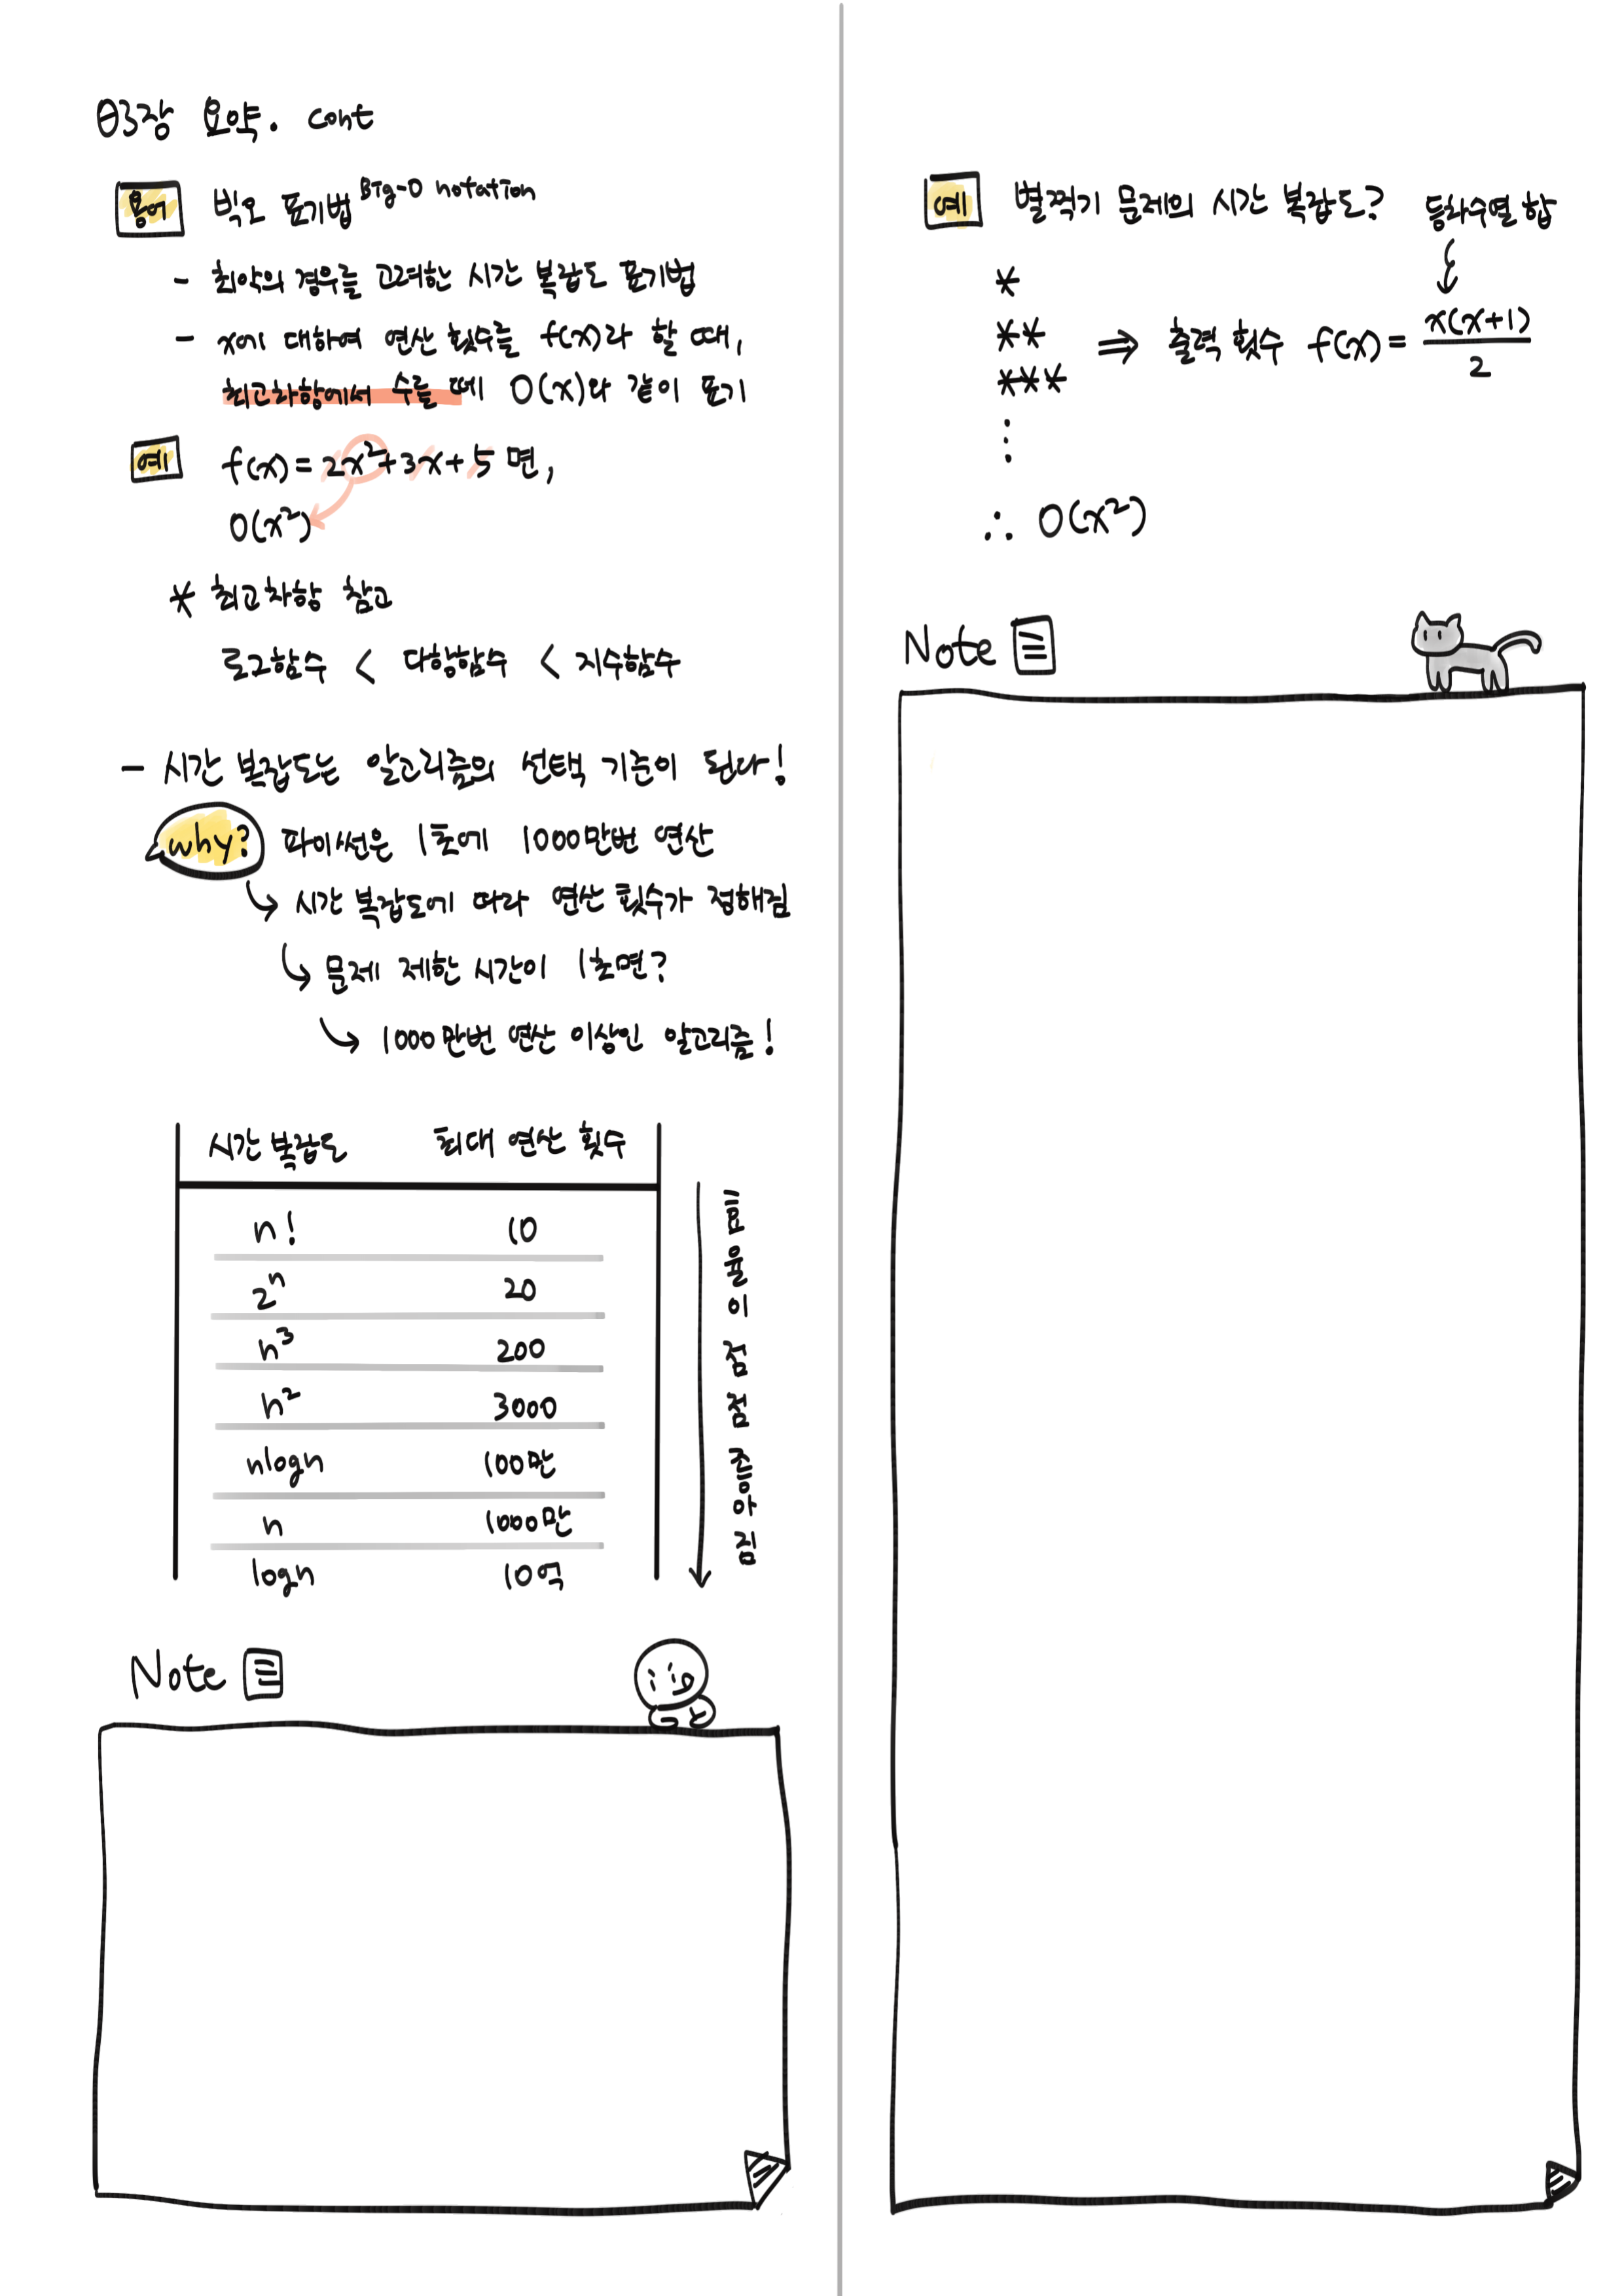 03장 요약. cont
용어 빅오 표기법 Big-O notation
- 최악의 경우를 고려한 시간 복잡도 표기법
- x에 대하여 연산 횟수를 f(x)라 할 때,
최고차항에서 수를 떼 O(x)와 같이 표기
예 f(x) = 2x²+3x+5 면,
O(x²)
* 최고차항 참고
로그함수 < 다항함수 < 지수함수
- 시간 복잡도는 알고리즘의 선택 기준이 된다!
why? 파이썬은 1초에 1000만번 연산
시간 복잡도에 따라 연산 횟수가 정해짐
문제 제한 시간이 1초면?
1000만번 연산 이상인 알고리즘!
시간 복잡도 최대 연산 횟수
n! 10
2ⁿ 20
n³ 200
n² 3000
nlogn 100만
n 1000만
logn 10억
효율이 점점 좋아짐
Note
예 별찍기 문제의 시간 복잡도? 등차수열 합
*
** ⇒ 출력 횟수 f(x) = x(x+1)/2
***
⋮
∴ O(x²)
Note